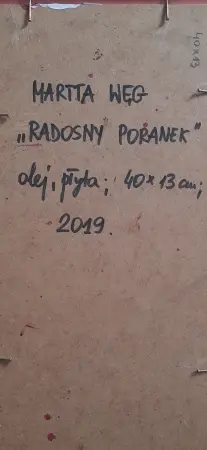 40x13
MARTTA WĘG
„RADOSNY PORANEK"
olej, płyta; 40 x 13 cm;
2019.